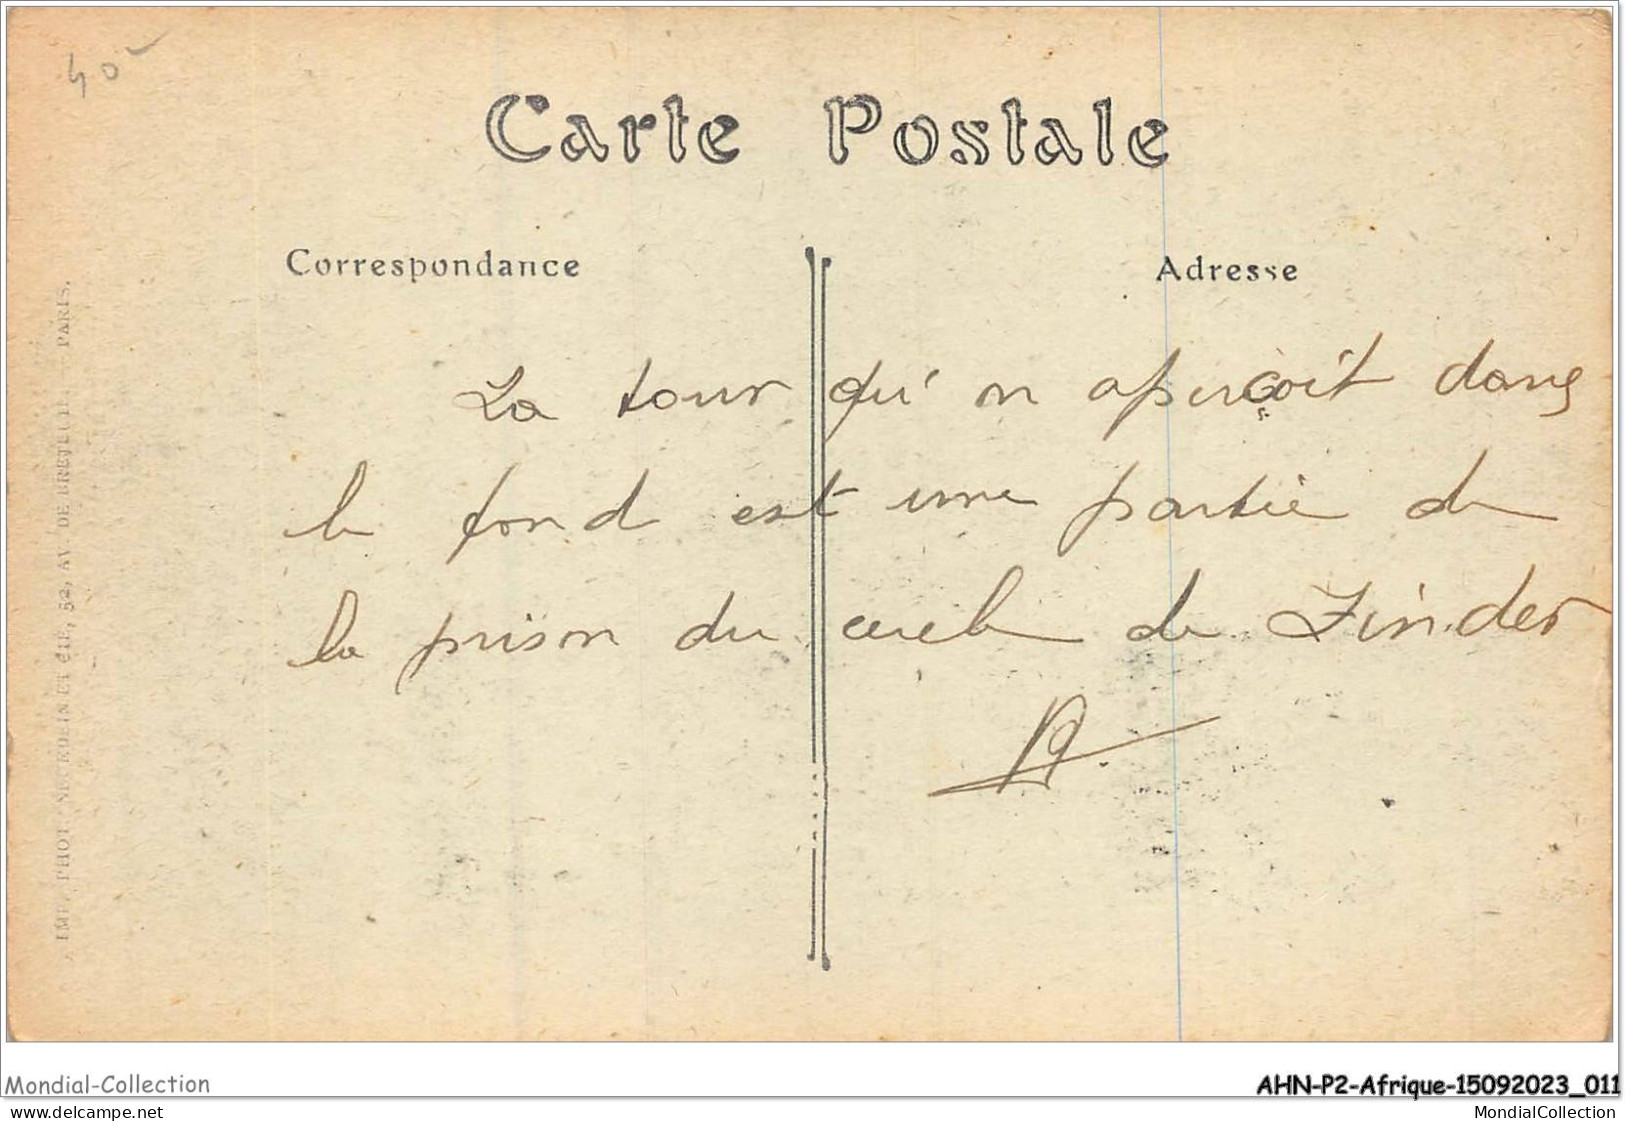 40
Carte Postale
Correspondance
Adresse
La tour qu'on aperçoit dans
le fond est une partie de
la prison du cercle de Zinder
IMP. PHOT. NEURDEIN ET CIE, 52, AV. DE BRETEUIL — PARIS.
Mondial-Collection
AHN-P2-Afrique-15092023_011
delcampe.net
MondialCollection